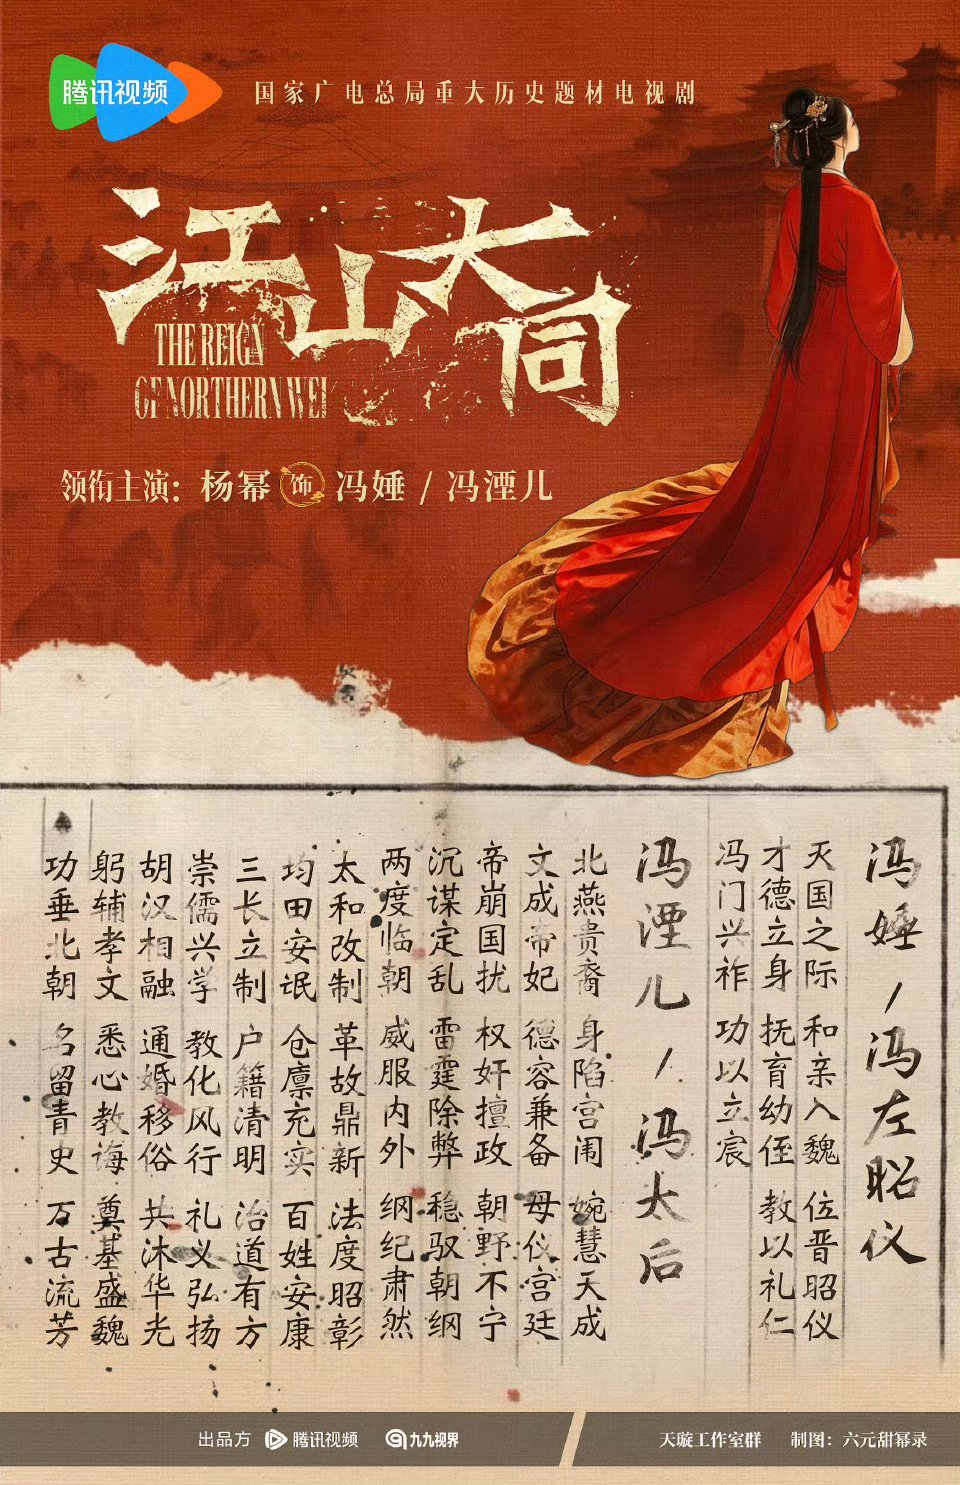 腾讯视频
国家广电总局重大历史题材电视剧
江山大同
THE REIGN
OF NORTHERN WEI
领衔主演：杨幂 饰 冯娷 / 冯湮儿
冯娷 / 冯左昭仪
灭国之际 和亲入魏 位晋昭仪
才德立身 抚育幼侄 教以礼仁
冯门兴祚 功以立宸
冯湮儿 / 冯太后
北燕贵裔 身陷宫闱 婉慧天成
文成帝妃 德容兼备 母仪宫廷
帝崩国扰 权奸擅政 朝野不宁
沉谋定乱 雷霆除弊 稳驭朝纲
两度临朝 威服内外 纲纪肃然
太和改制 革故鼎新 法度昭彰
均田安氓 仓廪充实 百姓安康
三长立制 户籍清明 治道有方
崇儒兴学 教化风行 礼义弘扬
胡汉相融 通婚移俗 共沐华光
躬辅孝文 悉心教诲 奠基盛魏
功垂北朝 名留青史 万古流芳
出品方 腾讯视频 九九视界
天璇工作室群 制图：六元甜幂录